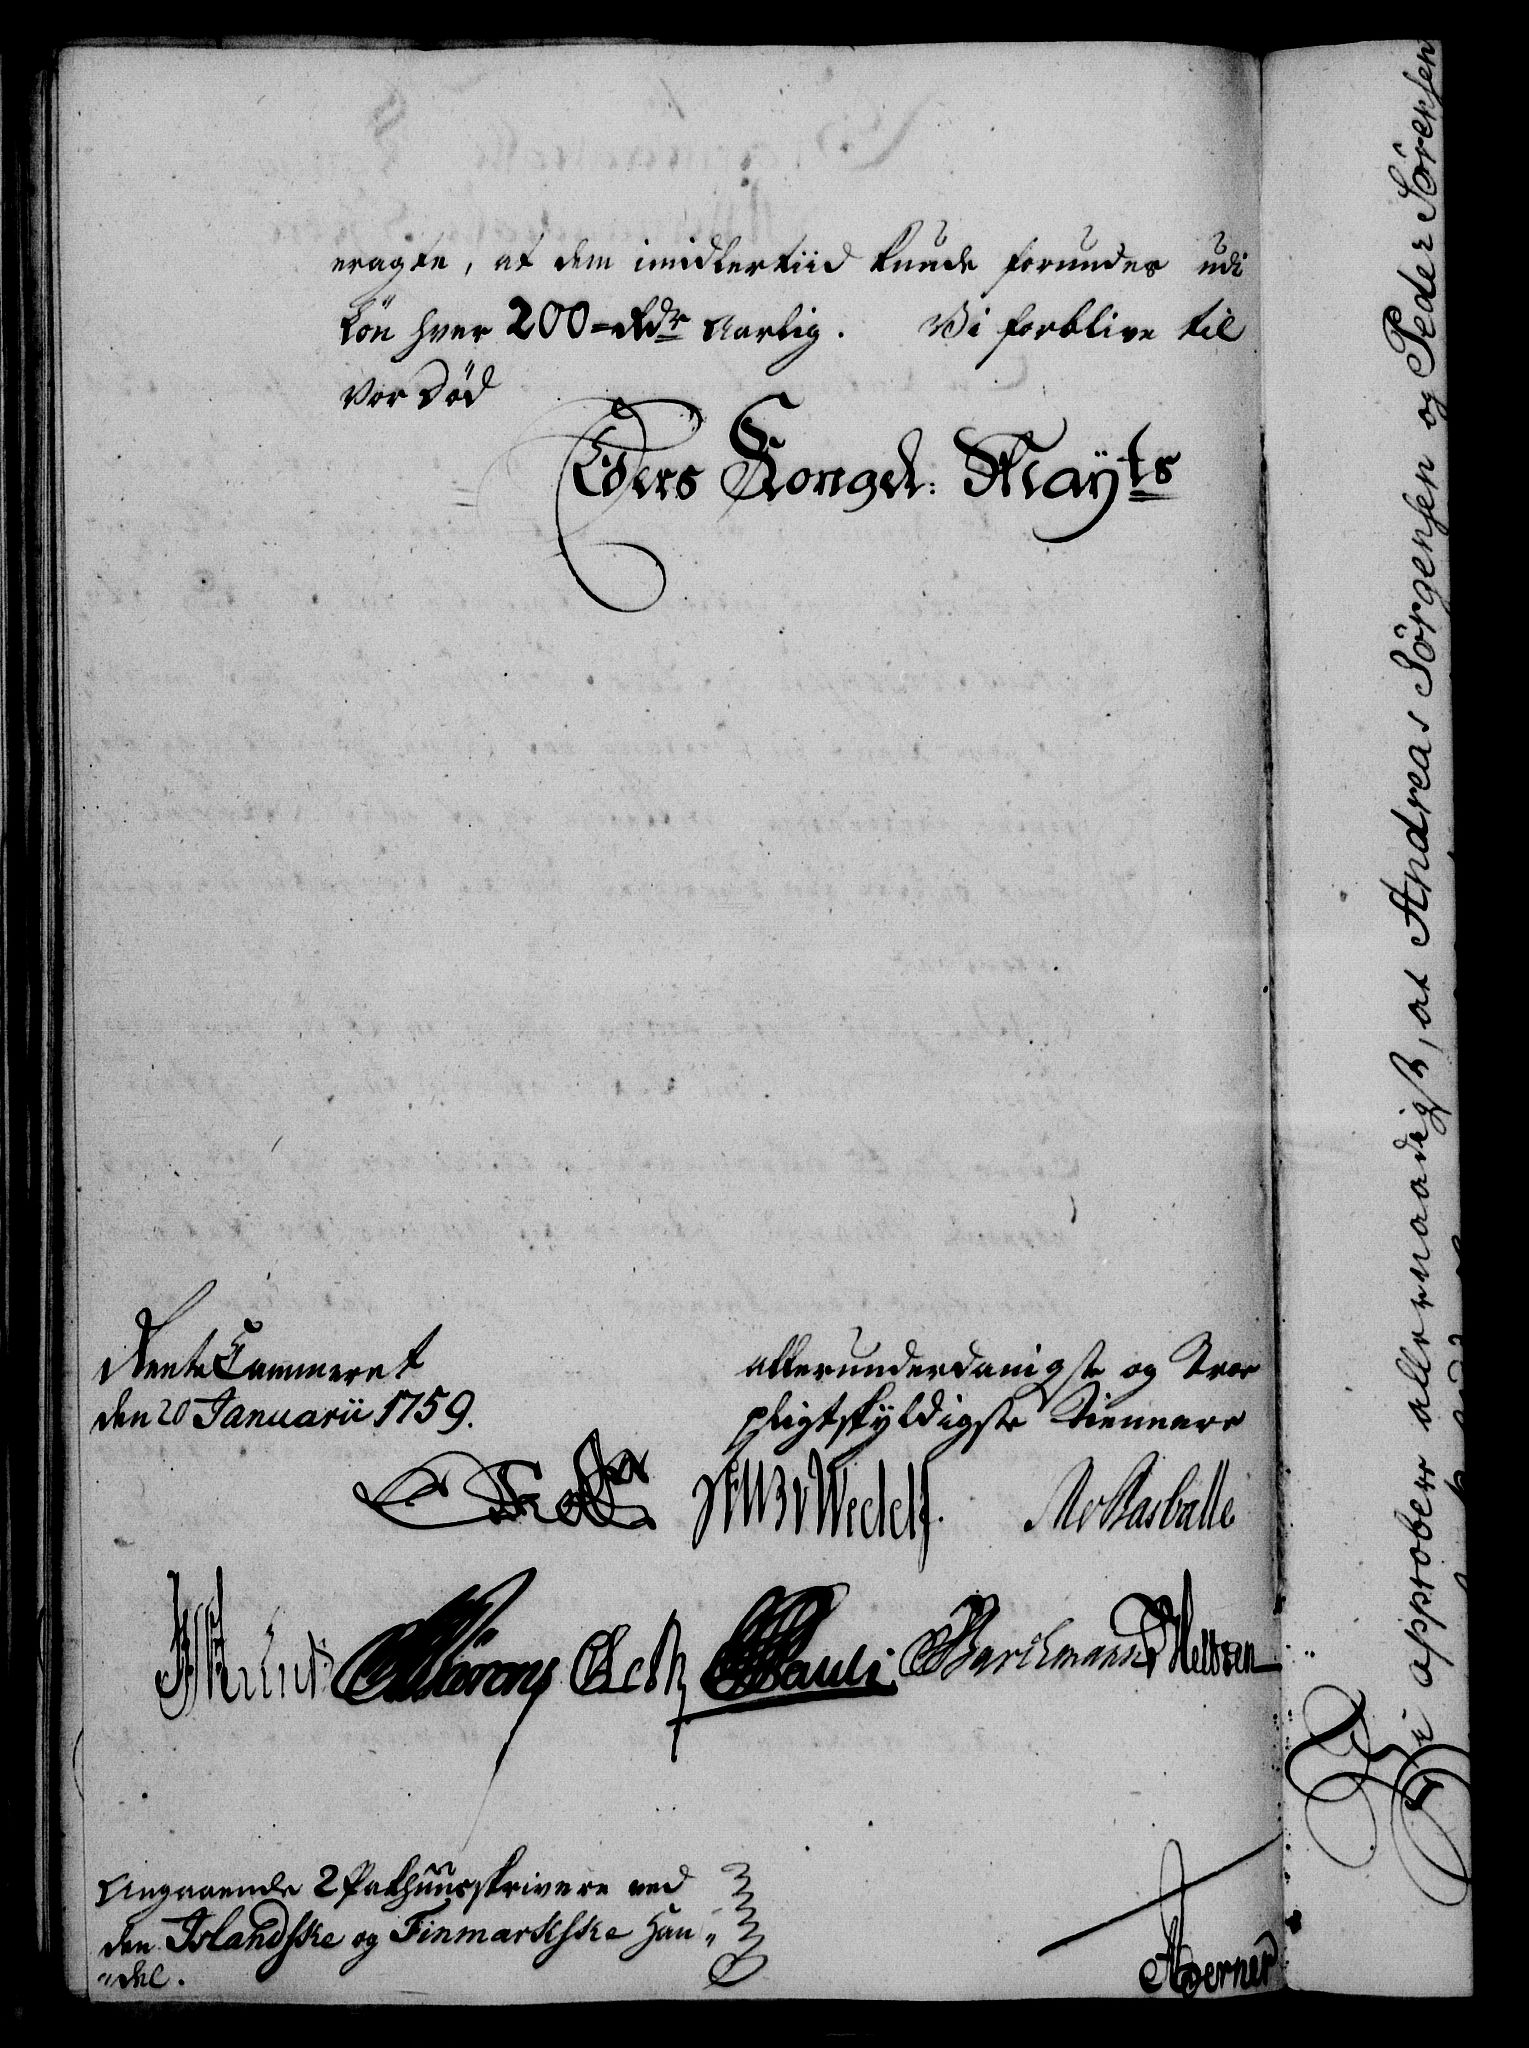 eragte, at dem imidlertiid kunde forundes udi
Løn hver 200 Rdr Aarlig. Vi forblive til
vor Død
Eders Kongel: Mayts
RenteCammeret
den 20 Januarii 1759.
allerunderdanigste og Troe
pligtskyldigste Tiennere
Wedell
Basballe
Pauli
Barchmann
Angaaende 2 Pakhuusskrivere ved
den Islandske og Finmarkske Han„
„del.
Averner
Vi approbere allernaadigst, at Andreas Jörgensen og Peder Sörensen